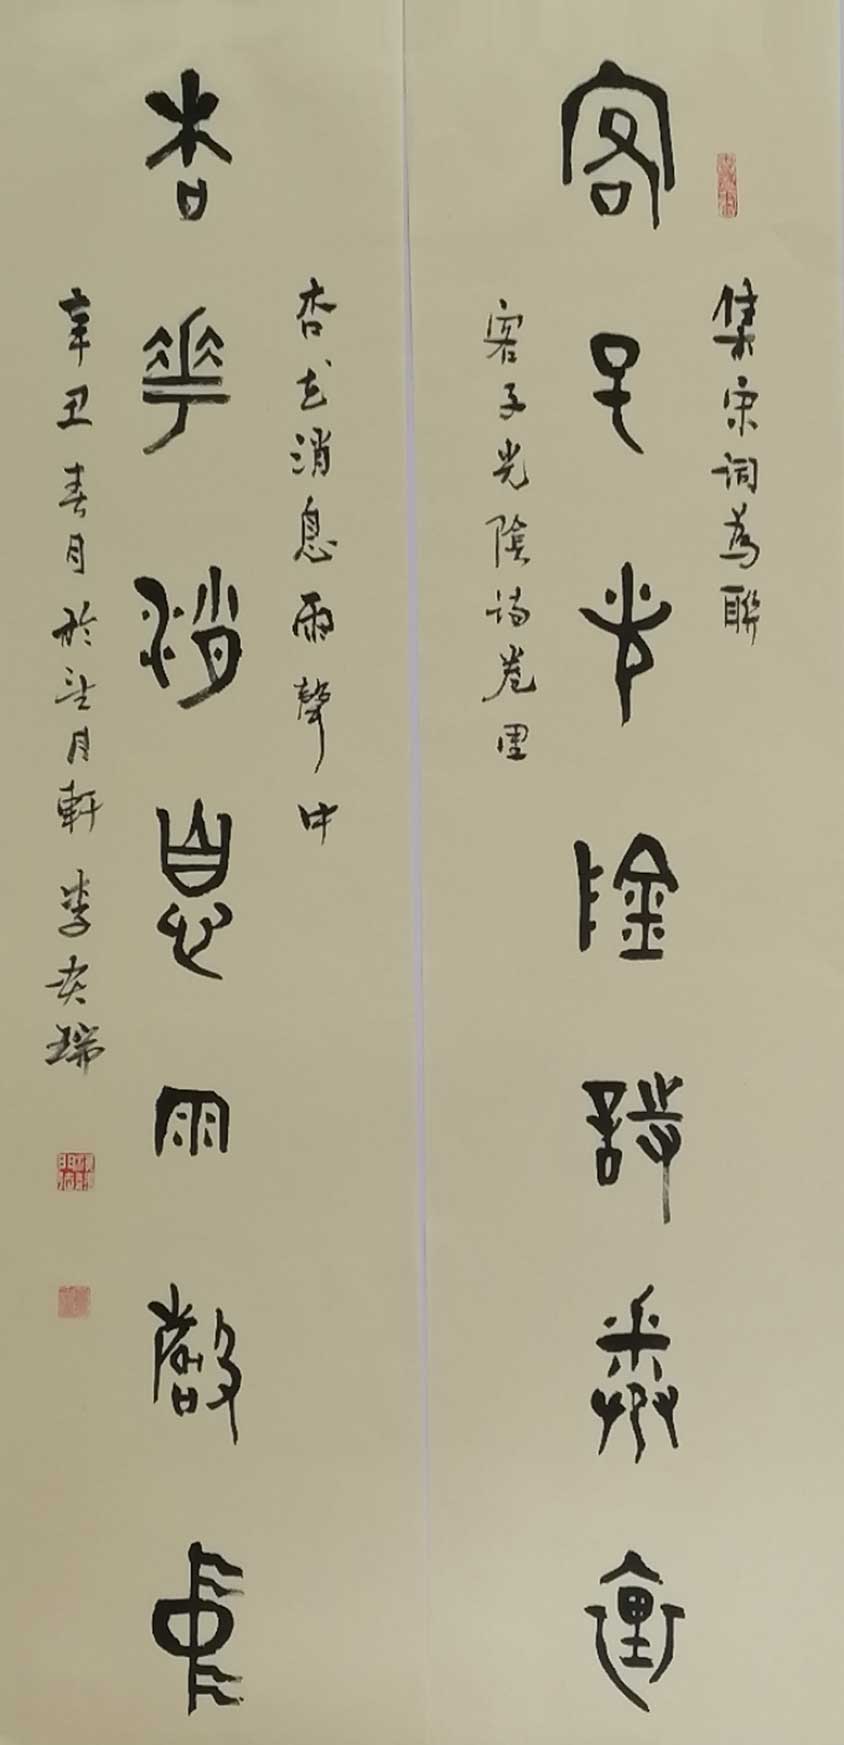 集宋词為聯
客子光陰詩卷裏
客子光陰诗卷里
杏花消息雨聲中
杏華消息雨聲中
辛丑春月於望月軒 李奕瑞